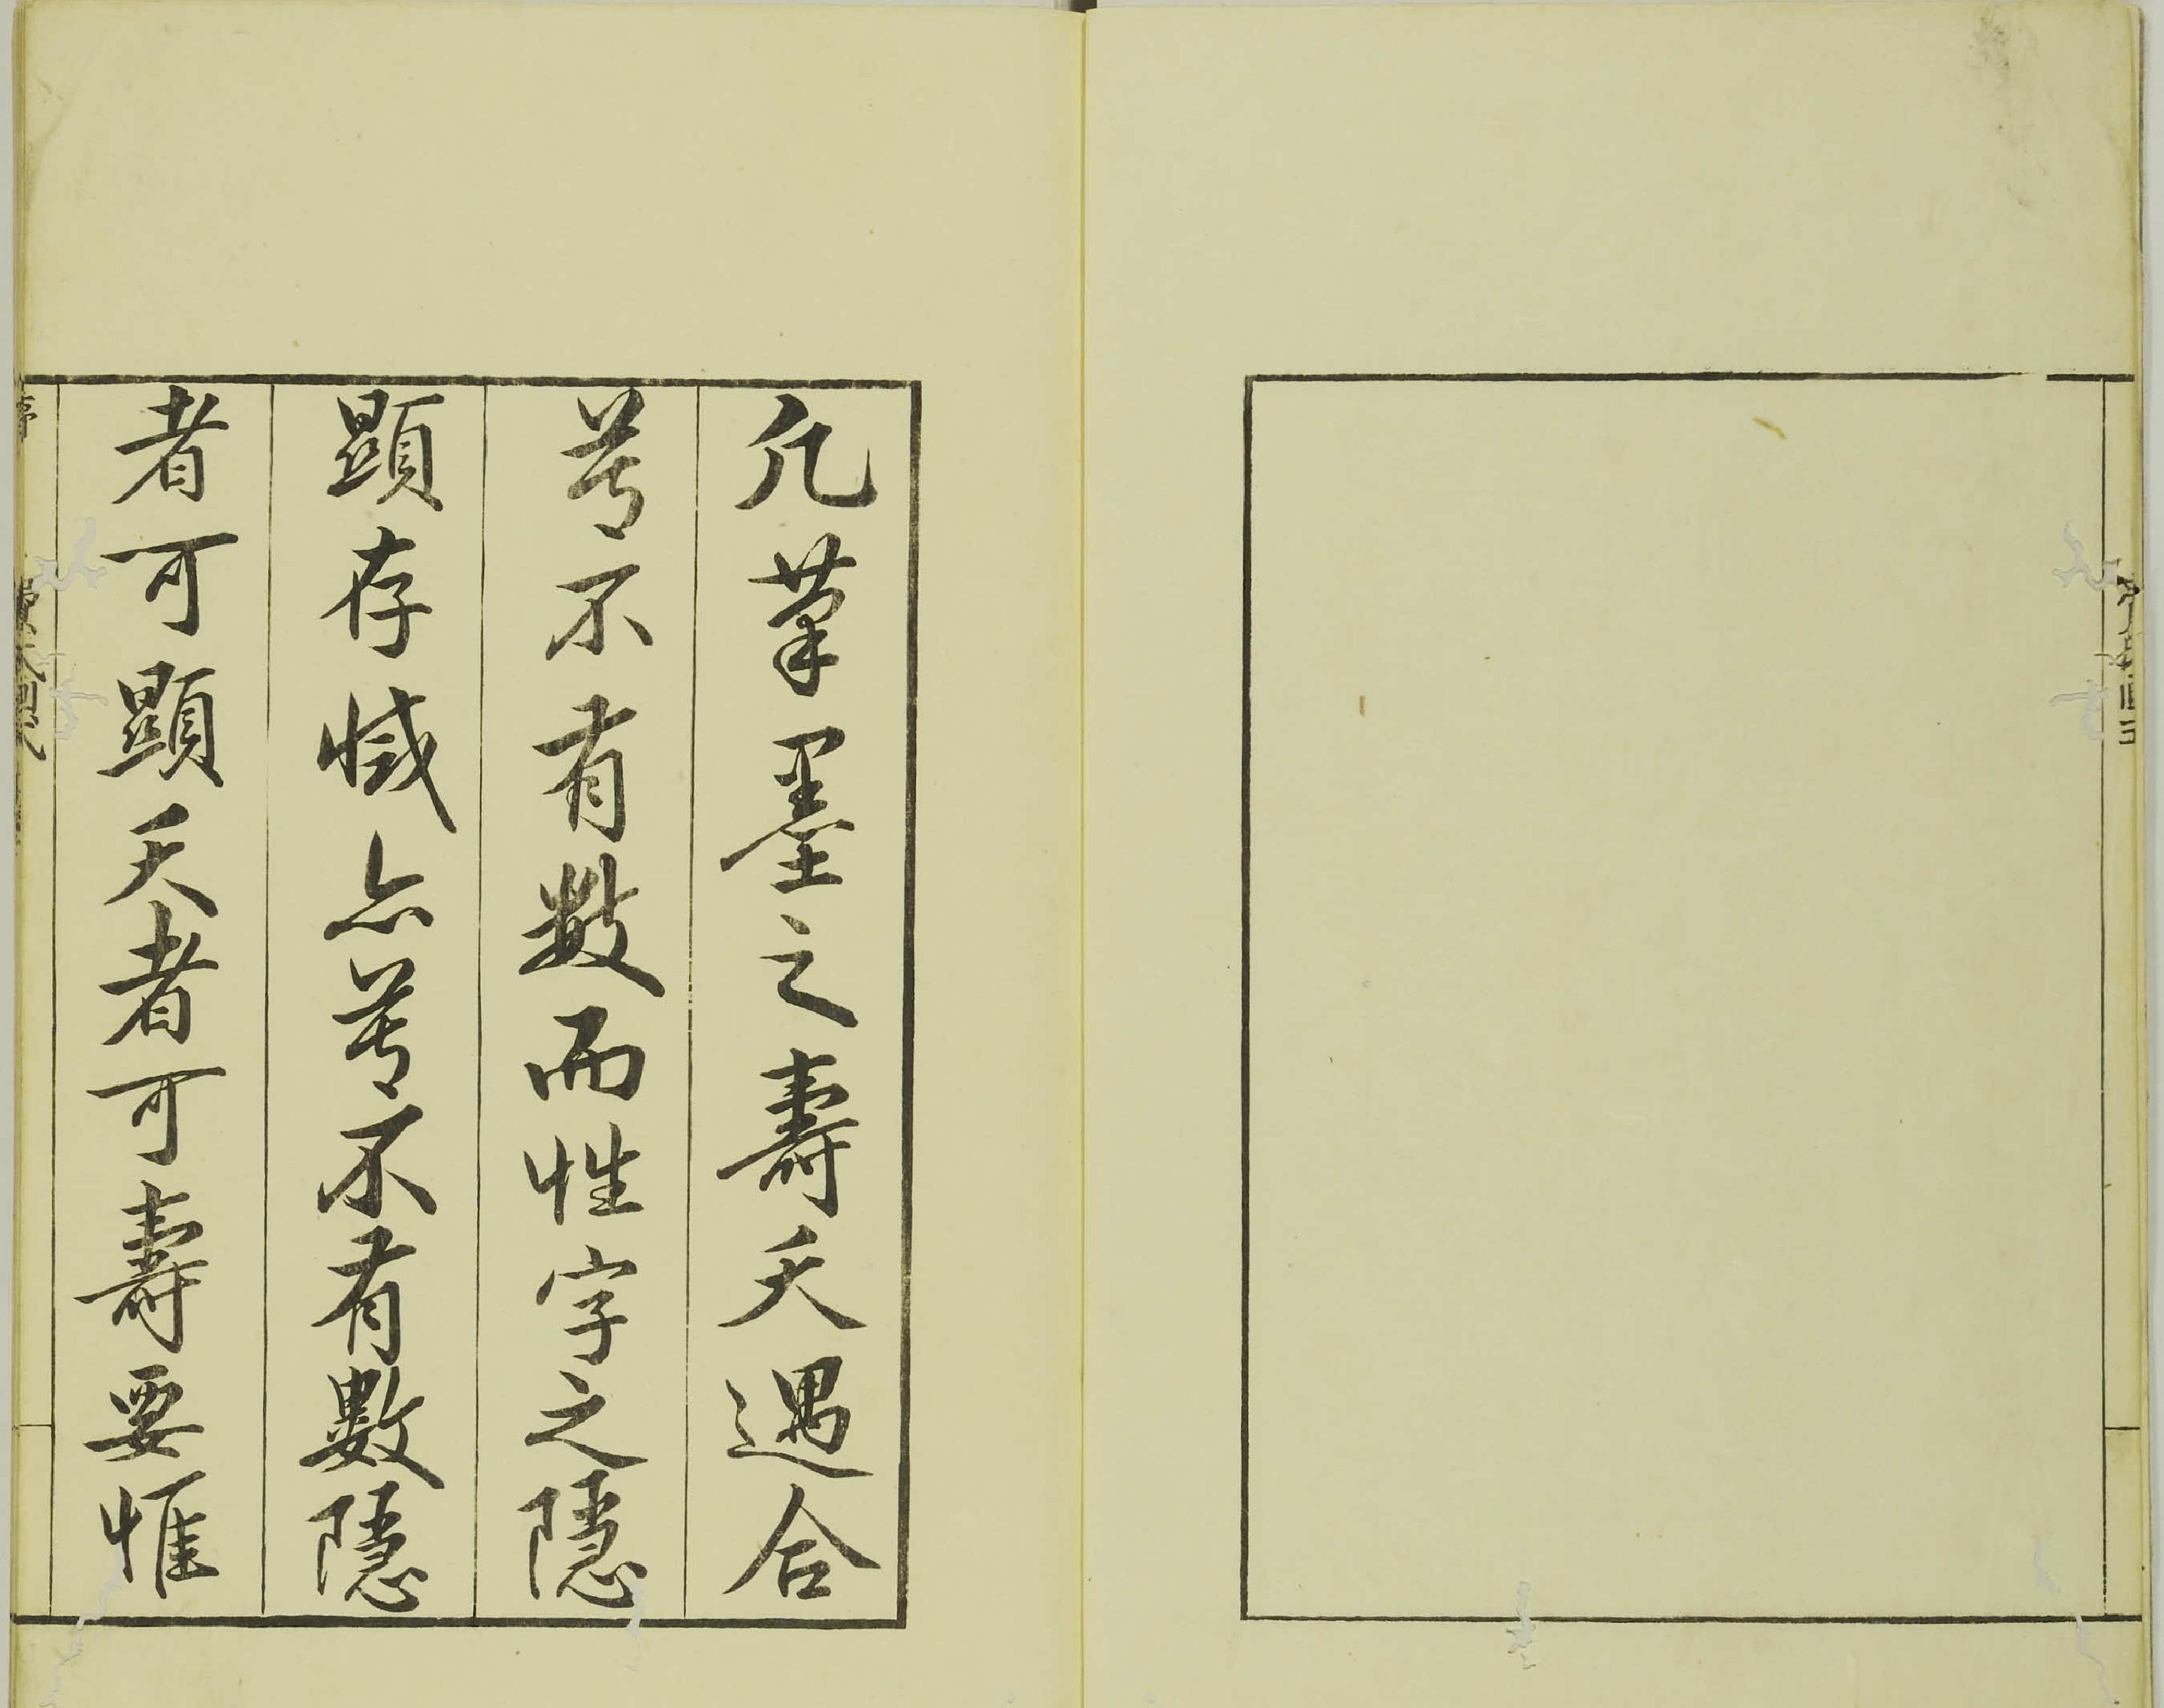 凡筆墨之壽夭遇合
若不有數而性字之隱
顯存㓕亦若不有數隱
者可顯夭者可壽要惟
序